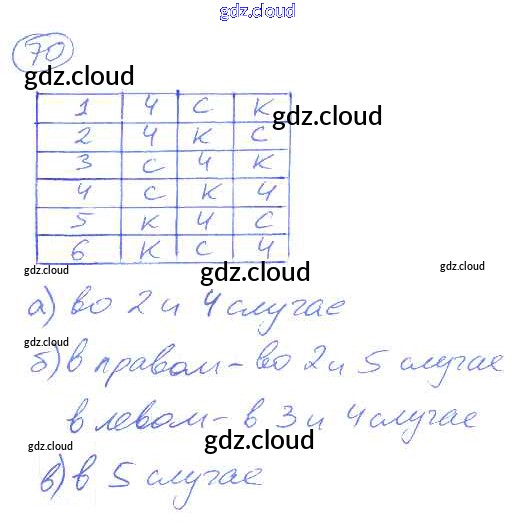 gdz.cloud
70
gdz.cloud
gdz.cloud
1 Ч С К
2 Ч К С
gdz.cloud
3 С Ч К
4 С К Ч
5 К Ч С
6 К С Ч
gdz.cloud
gdz.cloud
gdz.cloud
а) во 2 и 4 случае
б) в правом - во 2 и 5 случае
в левом - в 3 и 4 случае
gdz.cloud
gdz.cloud
в) в 5 случае